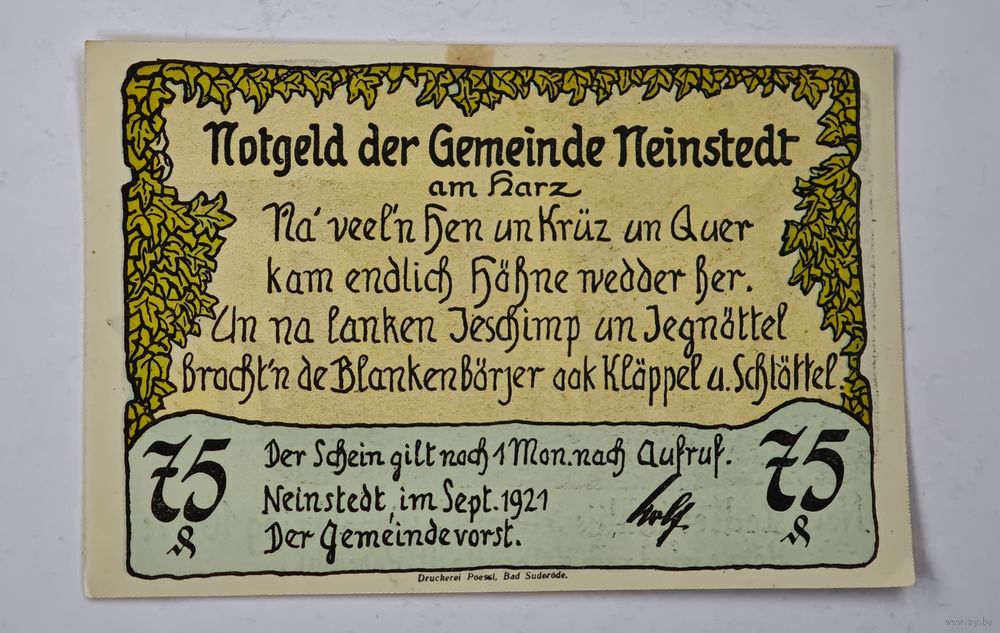 Notgeld der Gemeinde Neinstedt
am Harz
Na' veel'n Hen un Krüz un Quer
kam endlich Höhne wedder her.
Un na lanken Jeschimp un Jegnöttel
brocht'n de Blankenbörjer ook Kläppel u. Schlöttel.
75 Der Schein gilt noch 1 Mon. nach Aufruf. 75
Neinstedt, im Sept. 1921
Der Gemeindevorst.
Druckerei Poessl, Bad Suderode.
www.ay.by